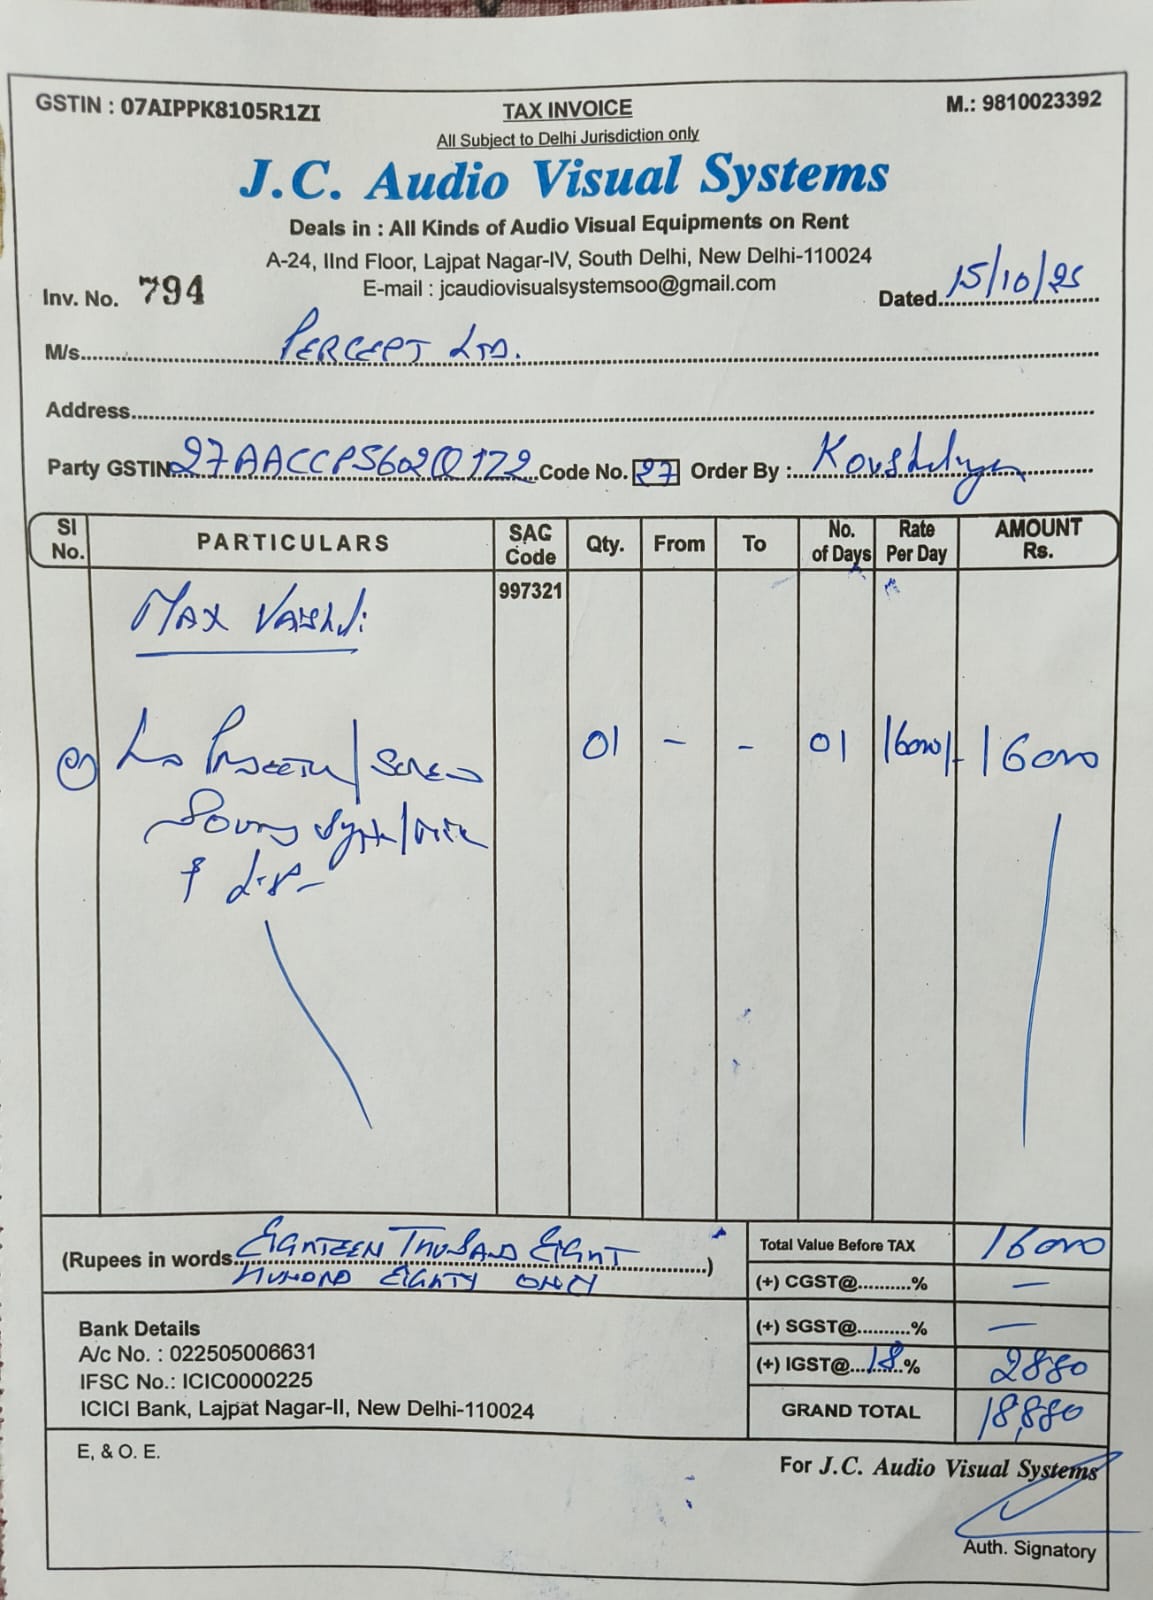 GSTIN : 07AIPPK8105R1ZI
TAX INVOICE
M.: 9810023392
All Subject to Delhi Jurisdiction only
J.C. Audio Visual Systems
Deals in : All Kinds of Audio Visual Equipments on Rent
A-24, IInd Floor, Lajpat Nagar-IV, South Delhi, New Delhi-110024
E-mail : jcaudiovisualsystemsoo@gmail.com
Inv. No. 794
Dated 15/10/25
M/s. PERCEPT LTD.
Address
Party GSTIN 27AACCP5602Q1Z2 Code No. 27 Order By :
SI No. PARTICULARS SAG Code Qty. From To No. of Days Rate Per Day AMOUNT Rs.
997321
MAX
01 - - 01 16000/- 16000
(Rupees in words EIGHTEEN THUSAND EIGHT
HUNDRD EIGHTY ONLY )
Total Value Before TAX 16000
(+) CGST@..........% —
(+) SGST@..........% —
(+) IGST@ 18 % 2880
GRAND TOTAL 18,880
Bank Details
A/c No. : 022505006631
IFSC No.: ICIC0000225
ICICI Bank, Lajpat Nagar-II, New Delhi-110024
E, & O. E.
For J.C. Audio Visual Systems
Auth. Signatory